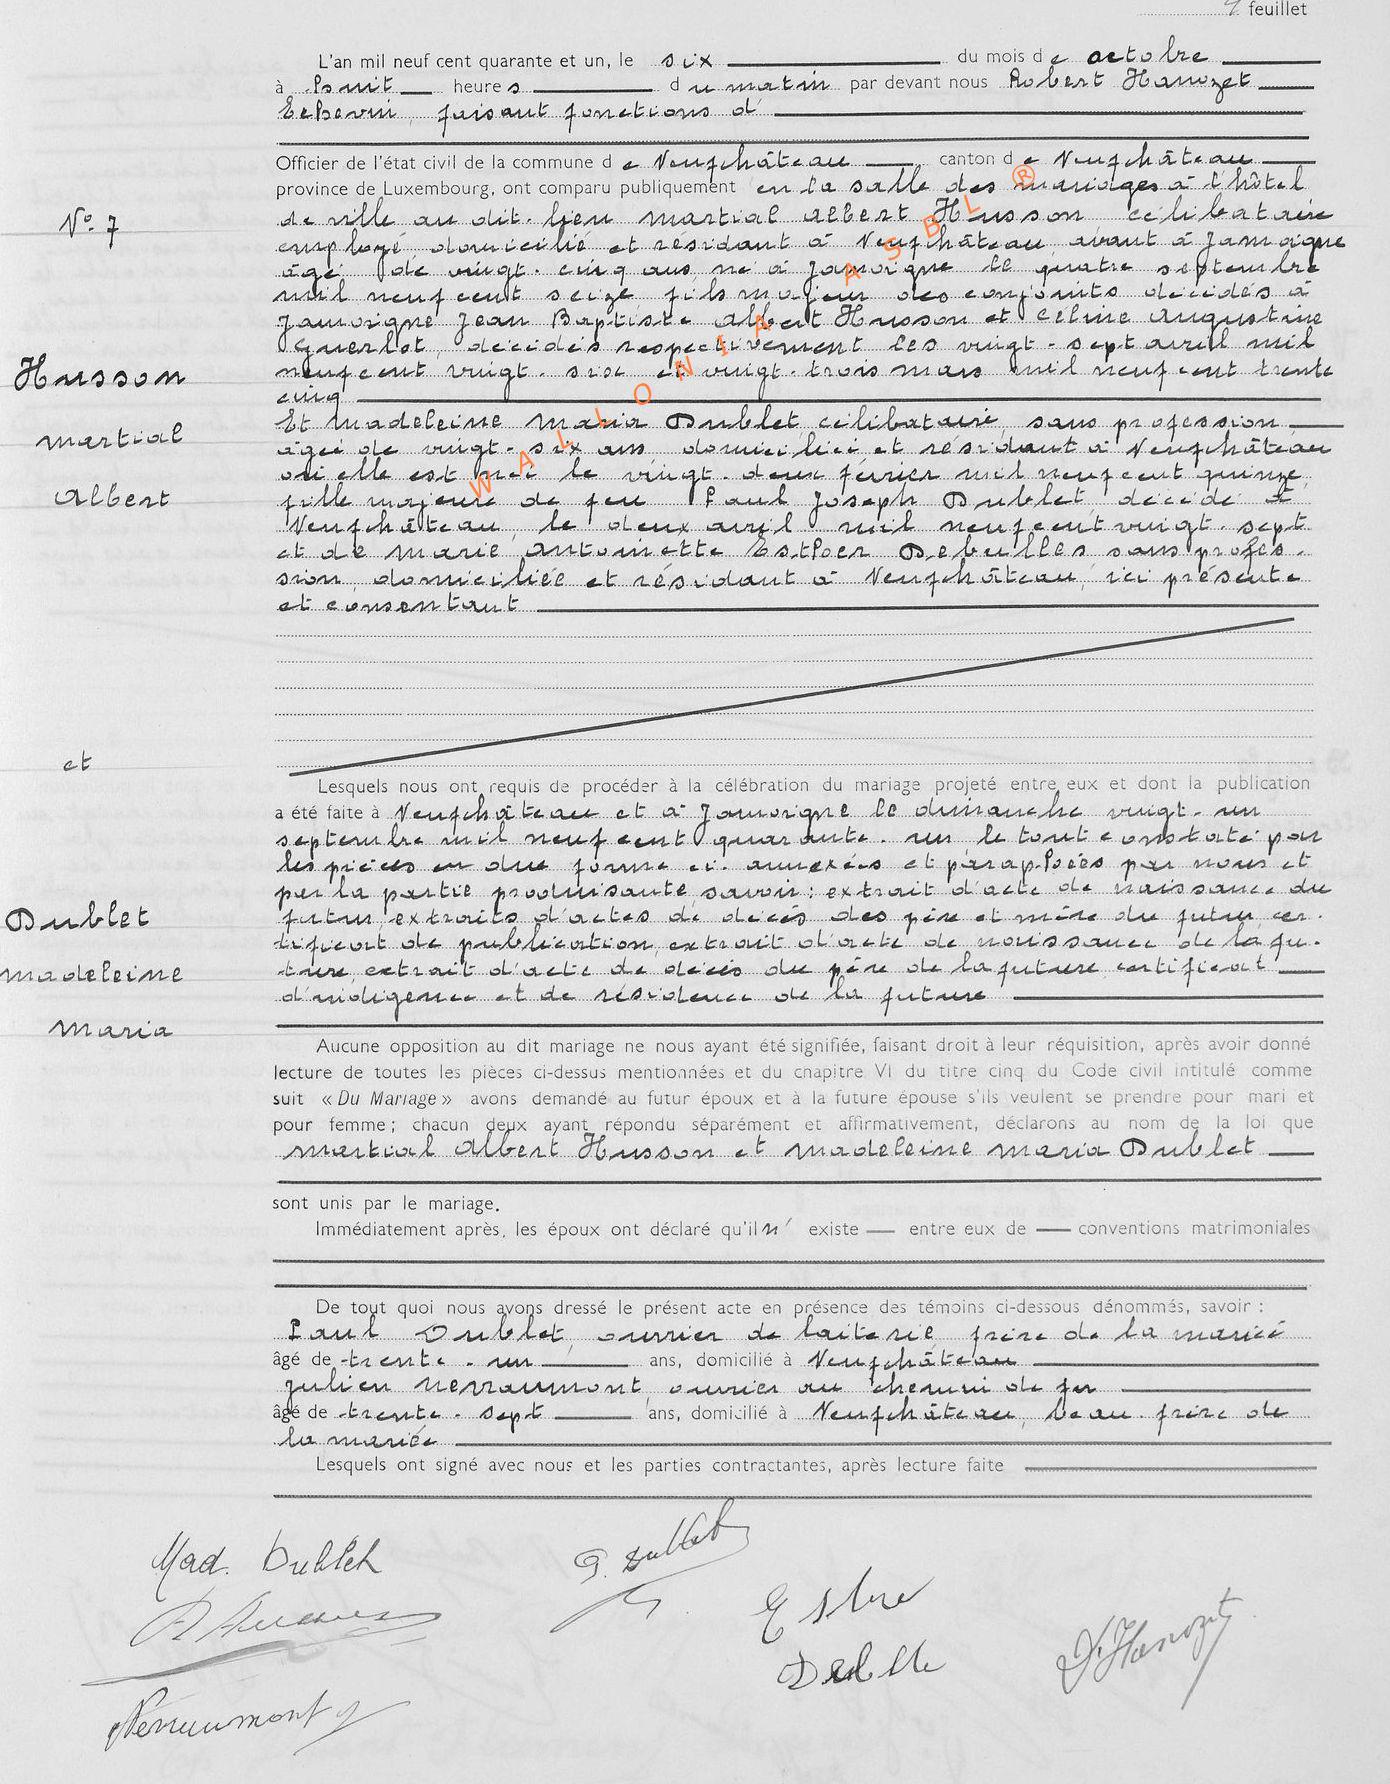 feuillet
L'an mil neuf cent quarante et un, le six du mois de octobre
à huit heures du matin par devant nous Robert Hanozet
Echevin, faisant fonctions d'
Officier de l'état civil de la commune de Neufchâteau canton de Neufchâteau
province de Luxembourg, ont comparu publiquement en la salle des mariages à l'hôtel
N° 7
de ville au dit-lieu Martial Albert Husson célibataire
employé domicilié et résidant à Neufchâteau avant à Jamoigne
âgé de vingt-cinq ans, né à Jamoigne le quatre septembre
mil neuf cent seize fils majeur des conjoints décédés à
Jamoigne Jean Baptiste Albert Husson et Céline Augustine
Guerlot, décédés respectivement les vingt-sept avril mil
Husson
neuf cent vingt-six et vingt-trois mars mil neuf cent trente
cinq
Et Madeleine Maria Dublet célibataire, sans profession
Martial
âgée de vingt-six ans domiciliée et résidant à Neufchâteau
où elle est née le vingt-deux février mil neuf cent quinze,
Albert
fille majeure de feu Paul Joseph Dublet, décédé à
Neufchâteau, le deux avril mil neuf cent vingt-sept
et de Marie Antoinette Esther Debulles sans profes-
sion domiciliée et résidant à Neufchâteau, ici présente
et consentant
WALLONIA ASBL ®
et
Lesquels nous ont requis de procéder à la célébration du mariage projeté entre eux et dont la publication
a été faite à Neufchâteau et à Jamoigne le dimanche vingt-un
septembre mil neuf cent quarante-un le tout constaté par
les pièces en due forme ci-annexées et paraphées par nous et
par la partie produisante, savoir : extrait d'acte de naissance du
Dublet
futur, extraits d'actes de décès des père et mère du futur cer-
tificat de publication, extrait d'acte de naissance de la fu-
Madeleine
ture, extrait d'acte de décès du père de la future, certificat
d'indigence et de résidence de la future
Maria
Aucune opposition au dit mariage ne nous ayant été signifiée, faisant droit à leur réquisition, après avoir donné
lecture de toutes les pièces ci-dessus mentionnées et du chapitre VI du titre cinq du Code civil intitulé comme
suit « Du Mariage » avons demandé au futur époux et à la future épouse s'ils veulent se prendre pour mari et
pour femme ; chacun deux ayant répondu séparément et affirmativement, déclarons au nom de la loi que
Martial Albert Husson et Madeleine Maria Dublet
sont unis par le mariage.
Immédiatement après, les époux ont déclaré qu'il n' existe — entre eux de — conventions matrimoniales
De tout quoi nous avons dressé le présent acte en présence des témoins ci-dessous dénommés, savoir :
Paul Dublet, ouvrier de laiterie, frère de la mariée
âgé de trente-un ans, domicilié à Neufchâteau
Julien Nerraumont, ouvrier au chemin de fer
âgé de trente-sept ans, domicilié à Neufchâteau, beau-frère de
la mariée
Lesquels ont signé avec nous et les parties contractantes, après lecture faite
Mad. Dublet
P. Dublet
Nerraumont J